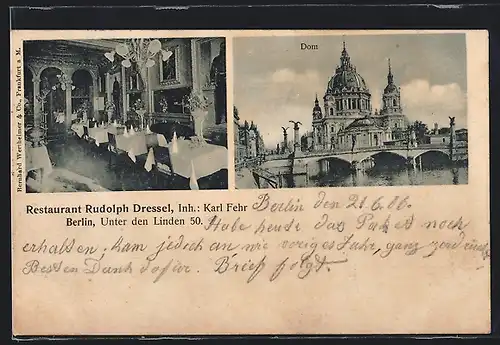 Bernhard Wertheimer & Co., Frankfurt a. M.
Dom
Restaurant Rudolph Dressel, Inh.: Karl Fehr
Berlin, Unter den Linden 50.
Berlin den
Habe heute das noch
erhalten, kam jedoch an wie voriges Jahr, ganz
Besten Dank dafür. Brief folgt.